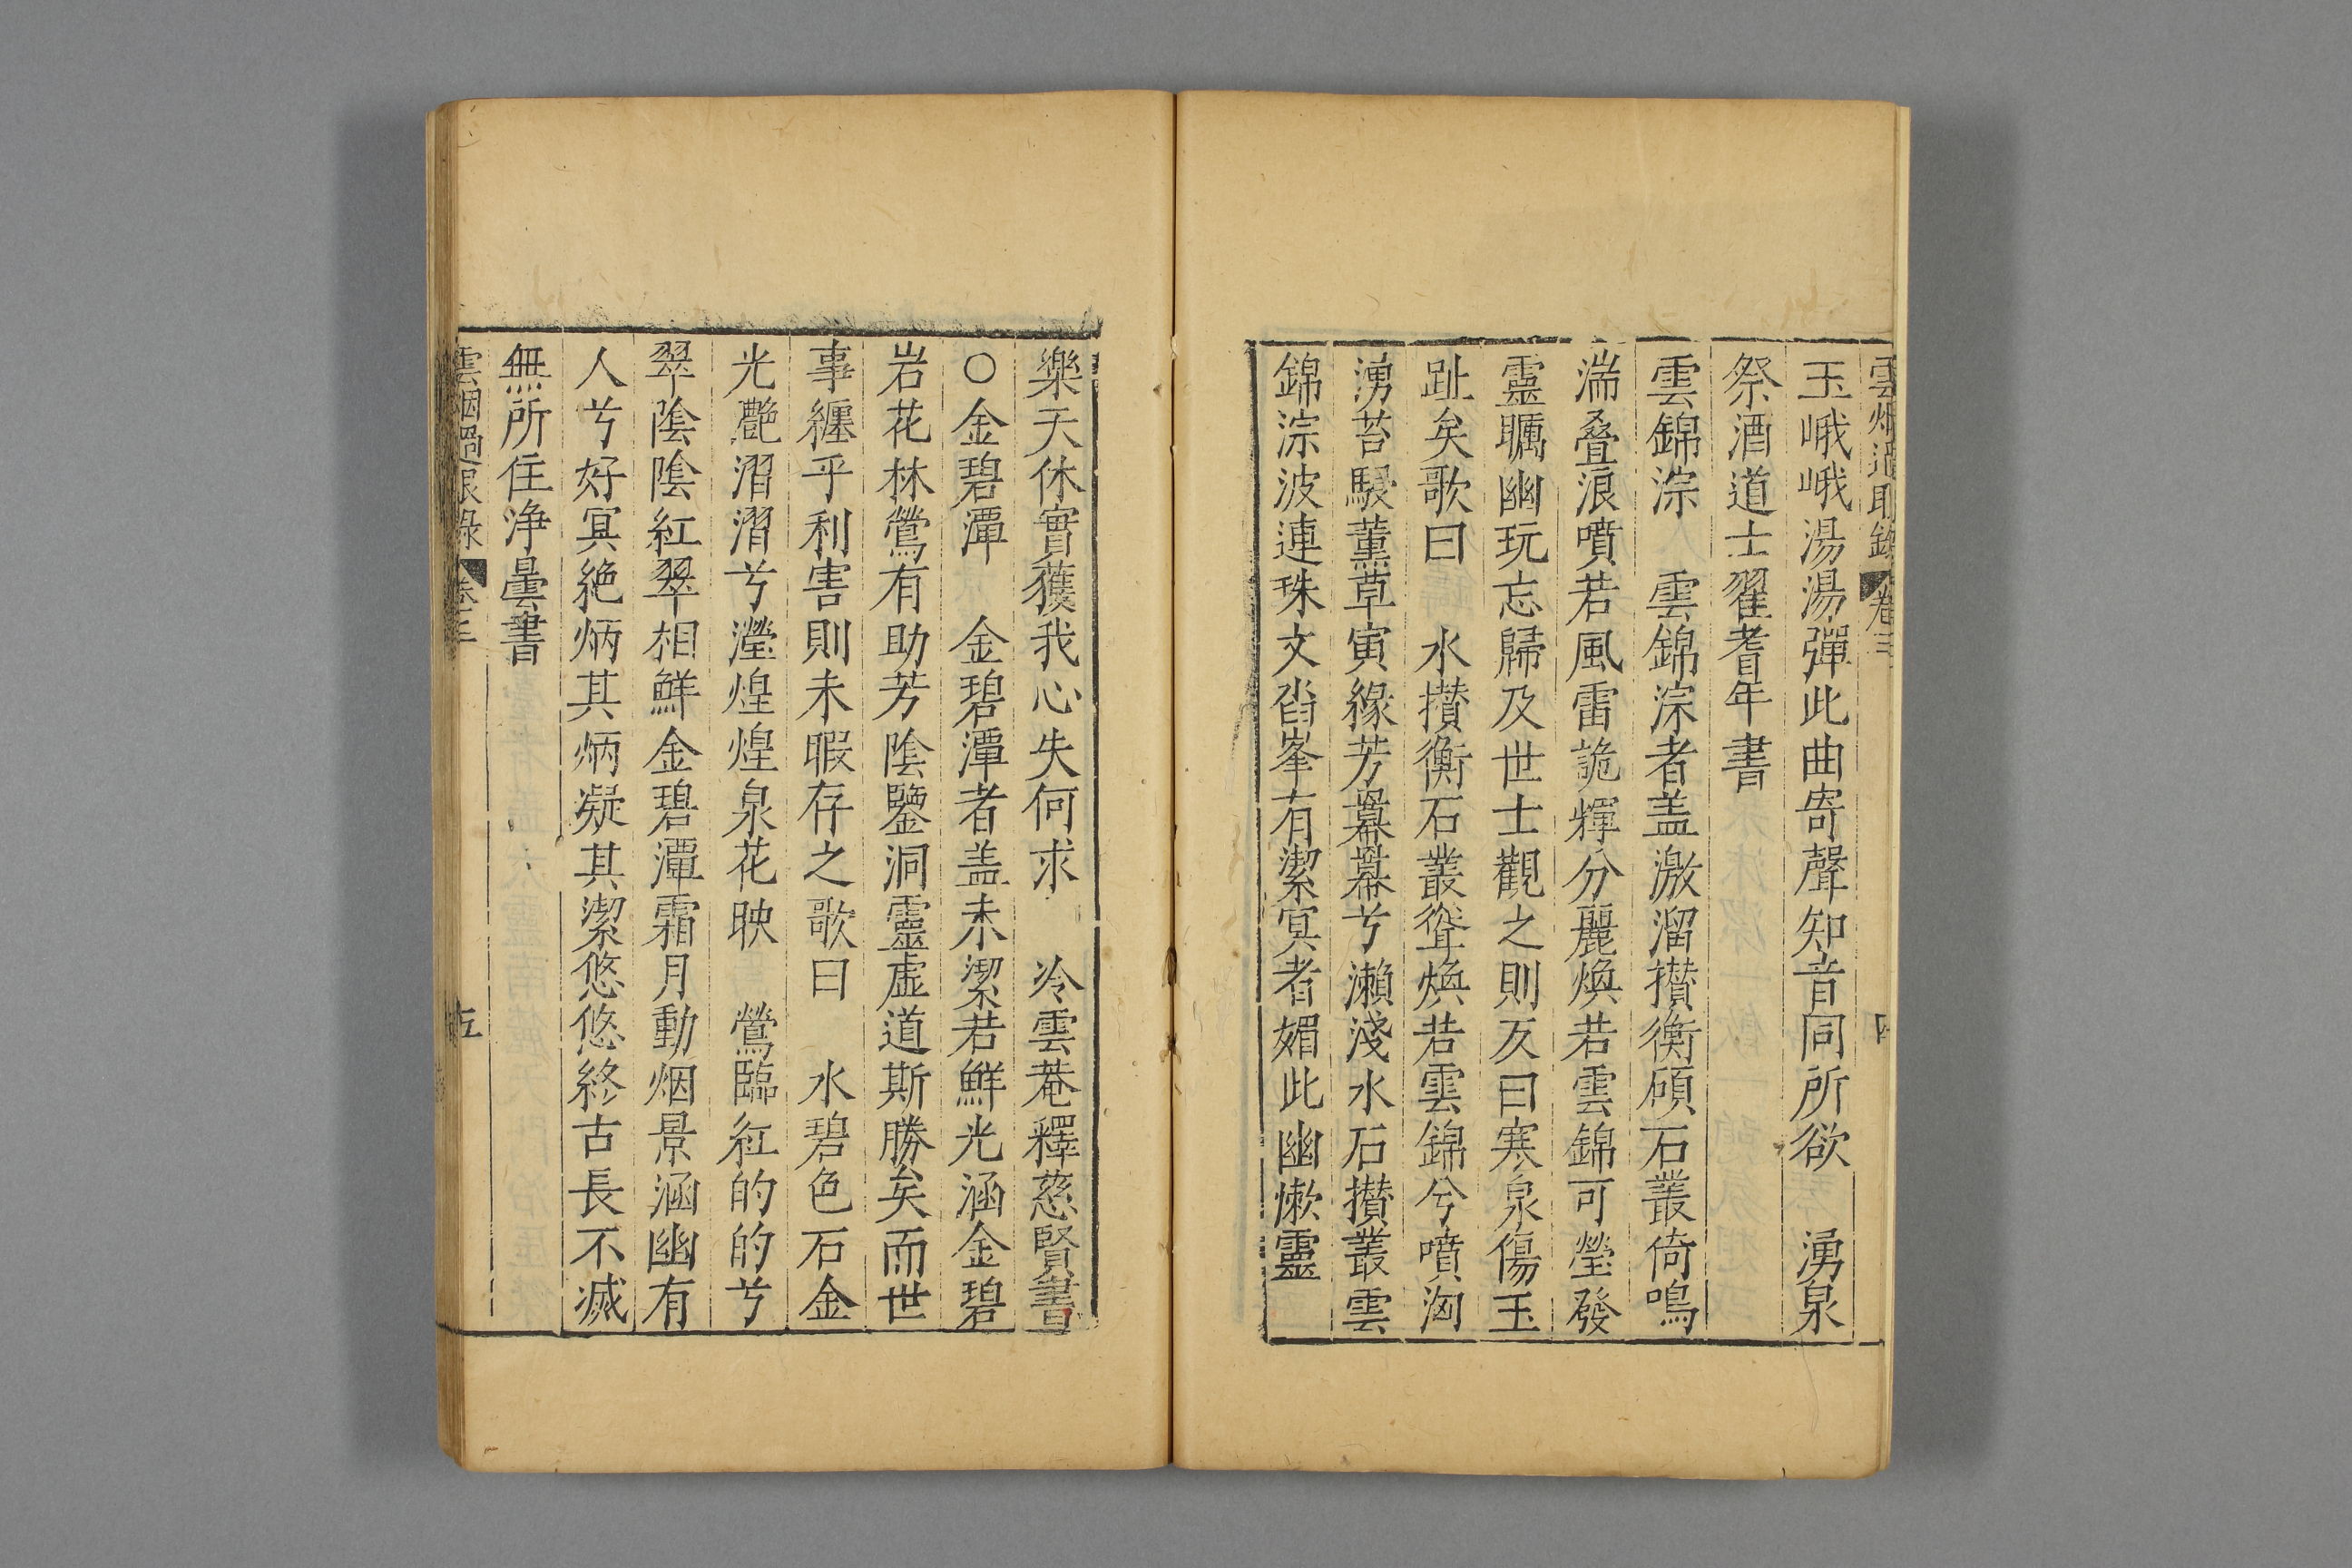 雲烟過眼錄 卷三 四
玉峨峨湯湯彈此曲寄聲知音同所欲　湧泉
祭酒道士翟耆年書
雲錦淙　雲錦淙者盖激溜攅衡碩石叢倚鳴
湍叠浪噴若風雷詭輝分麗煥若雲錦可瑩發
靈矚幽玩忘歸及世士觀之則反曰寒泉傷玉
趾矣歌曰　水攅衡石叢聳煥若雲錦兮噴洶
湧苔駁薰草寅緣芳羃羃兮瀨淺水石攅叢雲
錦淙波連珠文㳫峯有潔冥者媚此幽漱靈
樂天休實獲我心失何求　冷雲菴釋慈賢書
○金碧潭　金碧潭者盖未潔若鮮光涵金碧
岩花林鶯有助芳陰鑒洞靈虛道斯勝矣而世
事纏乎利害則未暇存之歌曰　水碧色石金
光艷熠熠兮瀅煌煌泉花映　鶯臨紅的的兮
翠陰陰紅翠相鮮金碧潭霜月動烟景涵幽有
人兮好冥絶炳其炳凝其潔悠悠終古長不滅
無所住浄曇書
雲烟過眼錄 卷三 五